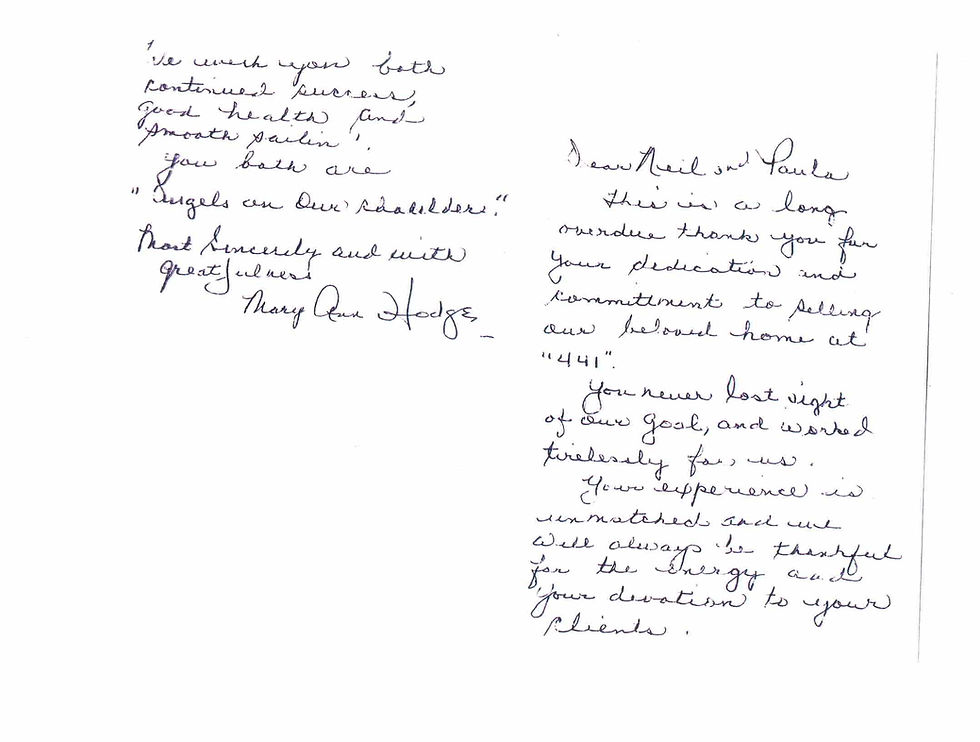 Dear Neil and Paula
this is a long
overdue thank you for
your dedication and
committment to selling
our beloved home at
"441".
You never lost sight
of our goal, and worked
tirelessly for us.
Your experience is
unmatched and we
will always be thankful
for the energy and
your devotion to your
clients.
We wish you both
continued success,
good health and
"smooth sailin'.
You both are
"Angels on Our shoulders."
Most Sincerely and with
greatfulness
Mary Ann Hodge